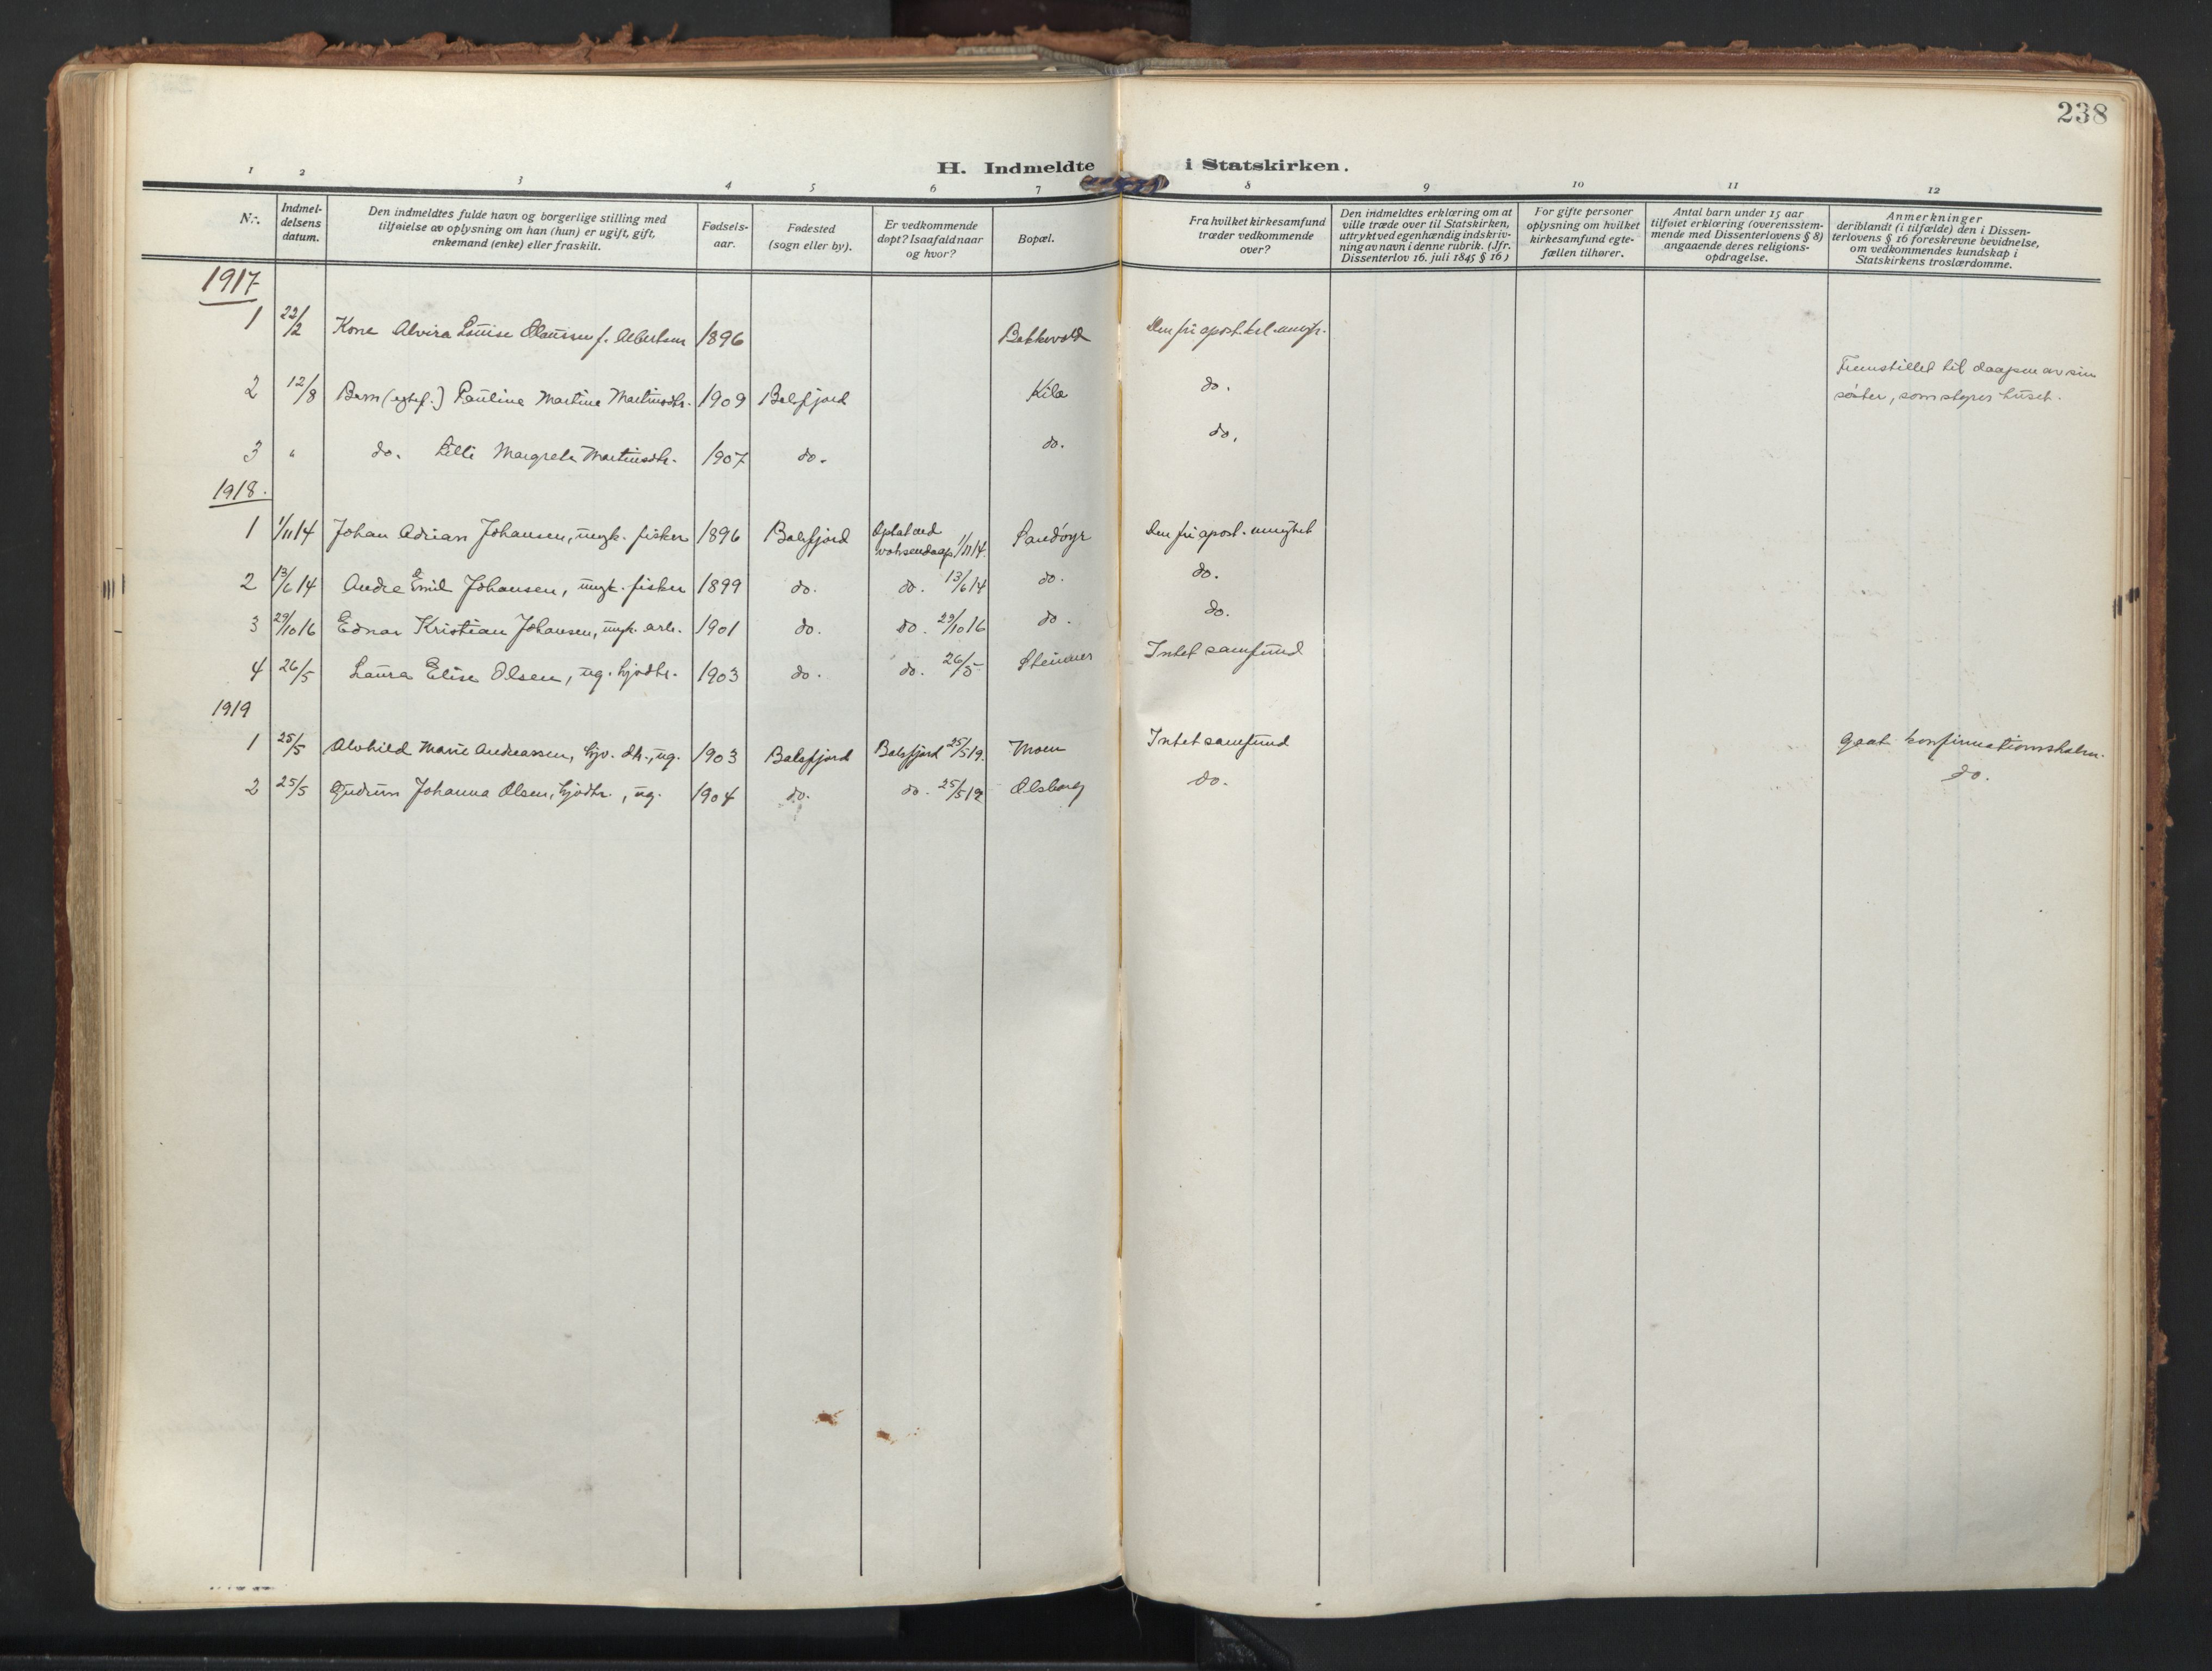 238
H. Indmeldte i Statskirken.
1 2 3 4 5 6 7 8 9 10 11 12
Nr.
Indmel-
delsens
datum.
Den indmeldtes fulde navn og borgerlige stilling med
tilføielse av oplysning om han (hun) er ugift, gift,
enkemand (enke) eller fraskilt.
Fødsels-
aar.
Fødested
(sogn eller by).
Er vedkommende
døpt? Isaafald naar
og hvor?
Bopæl.
Fra hvilket kirkesamfund
træder vedkommende
over?
Den indmeldtes erklæring om at
ville træde over til Statskirken,
uttrykt ved egenhændig indskriv-
ning av navn i denne rubrik. (Jfr.
Dissenterlov 16. juli 1845 § 16)
For gifte personer
oplysning om hvilket
kirkesamfund egte-
fællen tilhører.
Antal barn under 15 aar
tilføiet erklæring (overensstem-
mende med Dissenterlovens § 8)
angaaende deres religions-
opdragelse.
Anmerkninger
deriblandt (i tilfælde) den i Dissen-
terlovens § 16 foreskrevne bevidnelse,
om vedkommendes kundskap i
Statskirkens troslærdomme.
1917
1 22/2 Kone Alvira Louise Olaussen f. Albertsen 1896 Bakkevold Den fri apost. kel. mengh.
2 12/8 Barn (egtef.) Pauline Martine Martinsdtr. 1909 Balsfjord Kila do. Fremstillet til daapen av sin
søster, som styrer huset.
3 " do. Lilli Margrete Martinsdtr. 1907 do. do. do.
1918.
1 1/11 14 Johan Adrian Johansen, ungk. fisker 1896 Balsfjord Optat ved
voksendaap 1/11 14. Sandøyr Den fri apost. menighet
2 13/6 14 Andre Emil Johansen, ungk. fisker 1899 do. do. 13/6 14 do. do.
3 29/10 16 Ednar Kristian Johansen, ungk. arb. 1901 do. do. 29/10 16 do. do.
4 26/5 Laura Elise Olsen, ug. hjvdtr. 1903 do. do. 26/5 Stennes Intet samfund
1919
1 25/5 Alvhild Marie Andreassen, hjv. dtr., ug. 1903 Balsfjord Balsfjord 25/5 19. Moen Intet samfund Gaat konfirmationsskolen.
2 25/5 Gudrun Johanna Olsen, hjvdtr., ug. 1904 do. do. 25/5 19 Olsborg do. do.